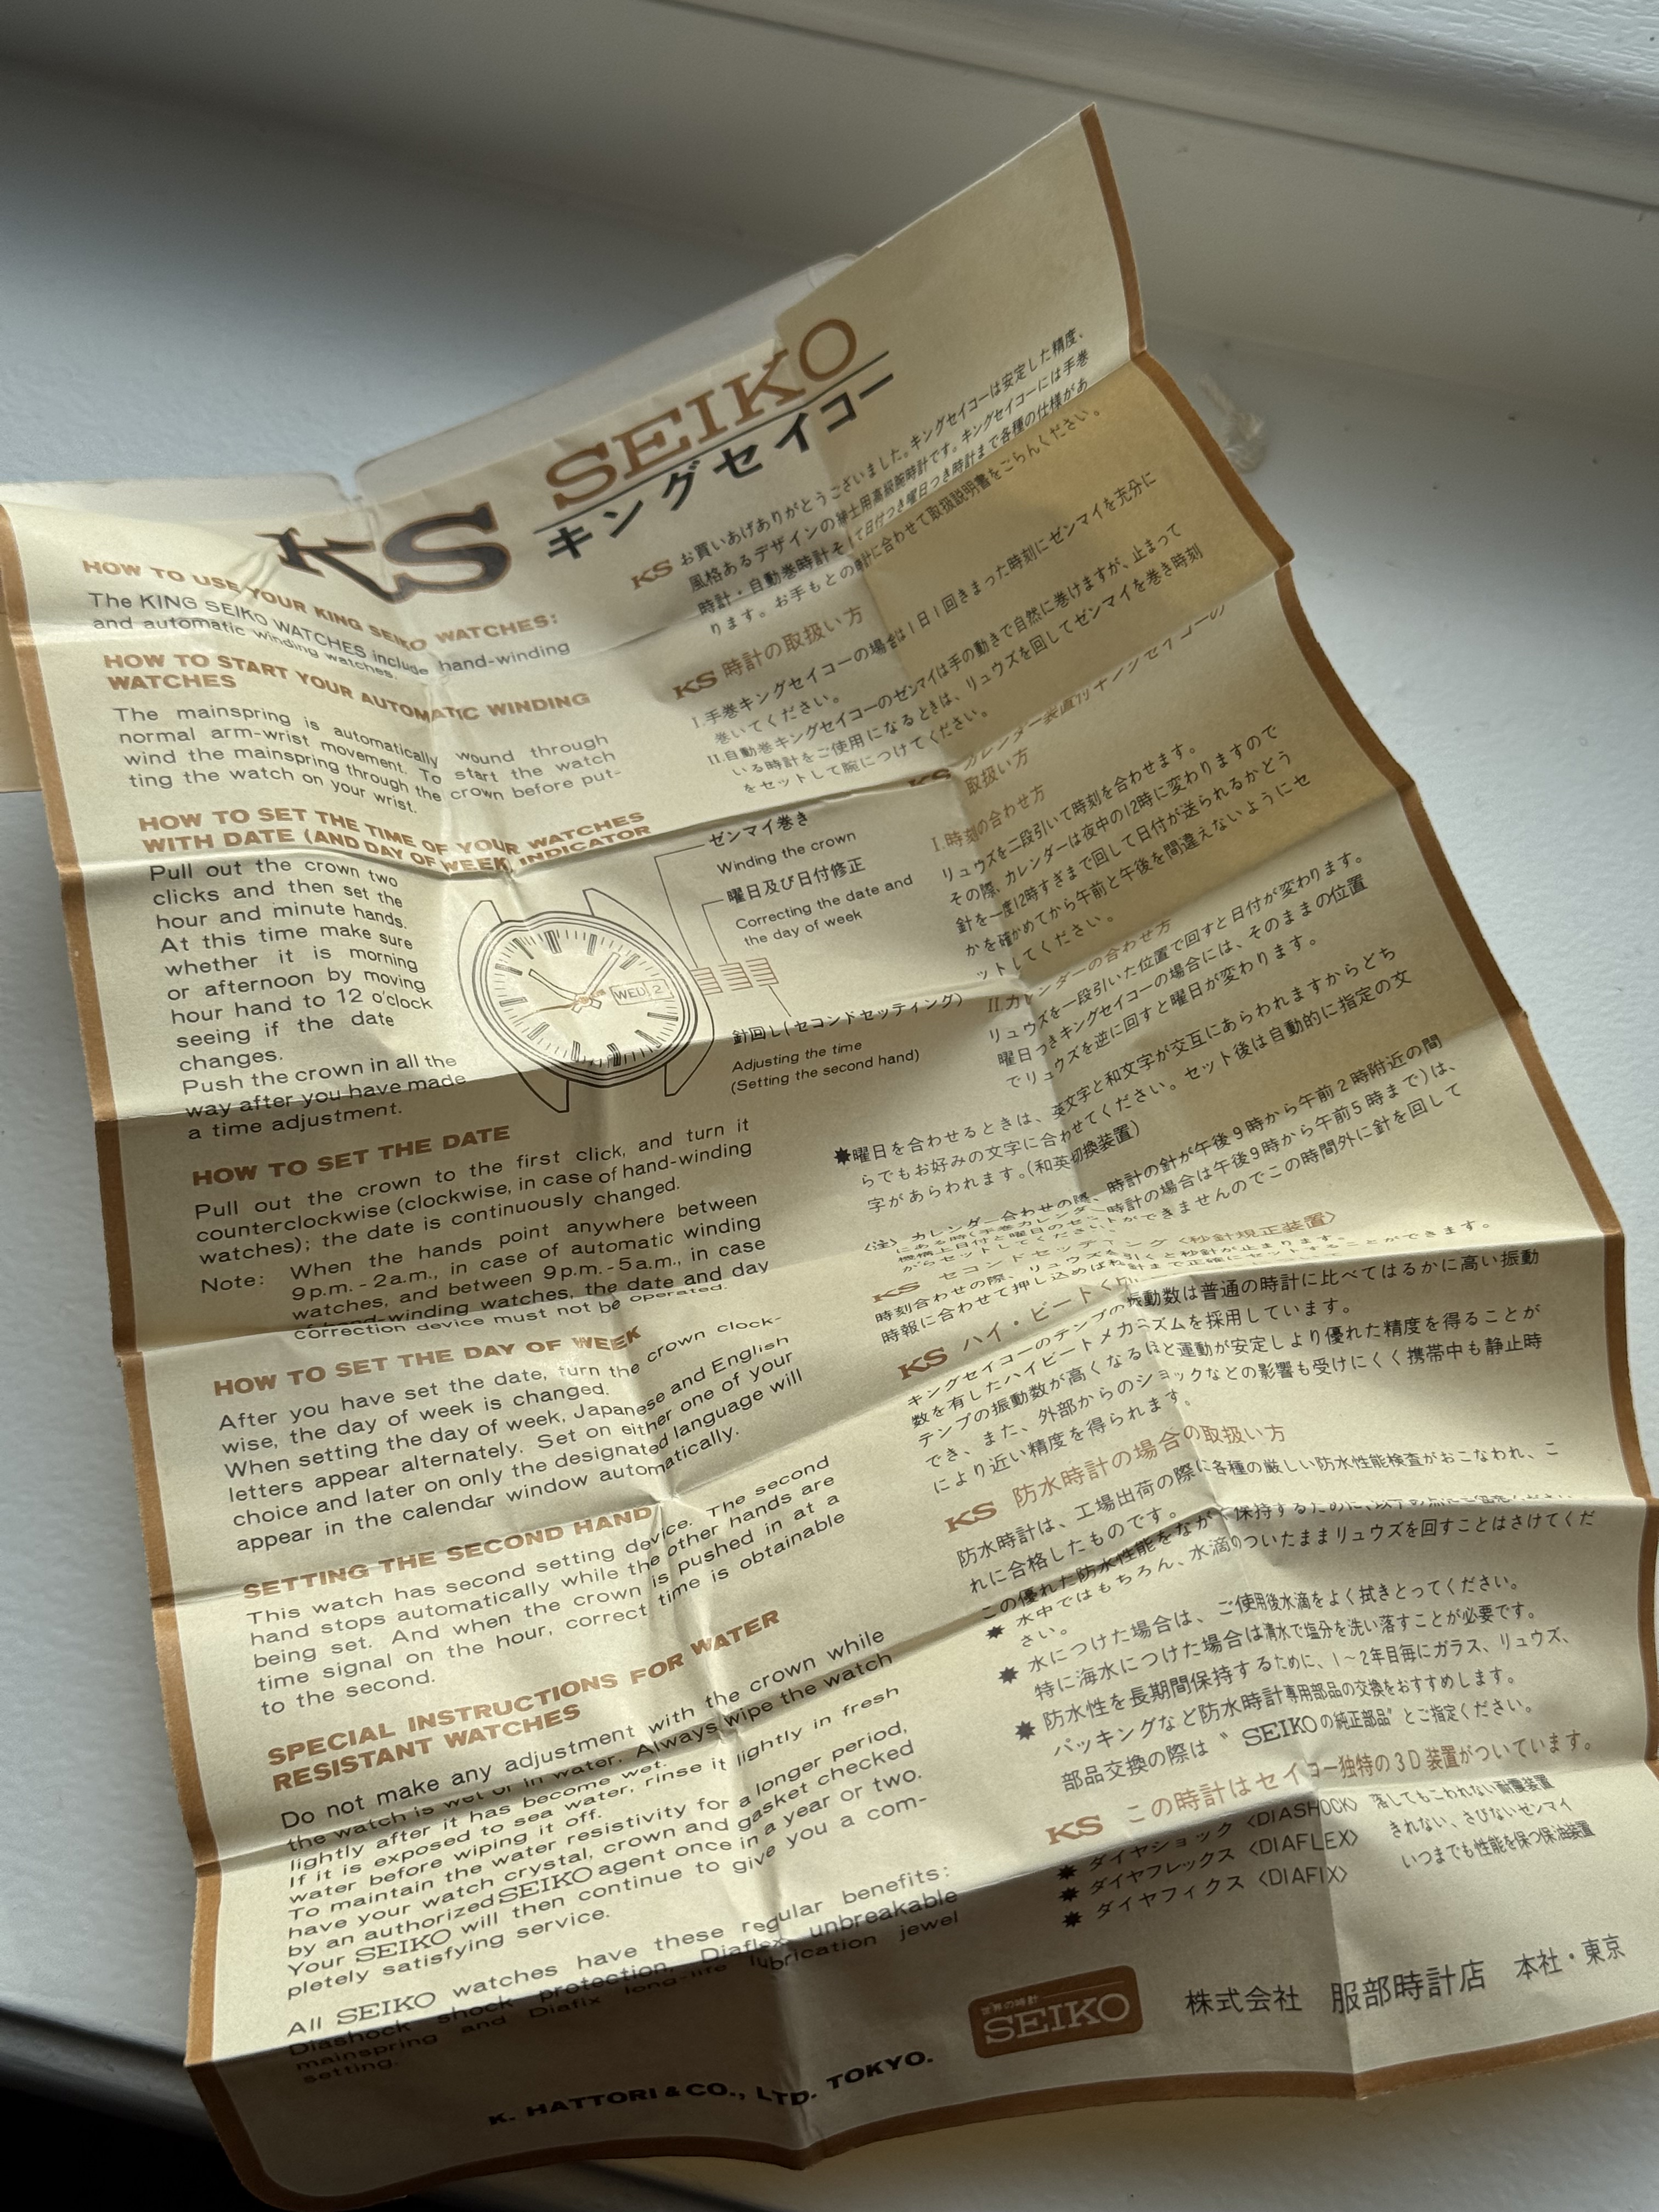 KS SEIKO
キングセイコー
HOW TO USE YOUR KING SEIKO WATCHES:
The KING SEIKO WATCHES include hand-winding
and automatic winding watches.
HOW TO START YOUR AUTOMATIC WINDING
WATCHES
The mainspring is automatically wound through
normal arm-wrist movement. To start the watch
wind the mainspring through the crown before put-
ting the watch on your wrist.
HOW TO SET THE TIME OF YOUR WATCHES
WITH DATE (AND DAY OF WEEK) INDICATOR
Pull out the crown two
clicks and then set the
hour and minute hands.
At this time make sure
whether it is morning
or afternoon by moving
hour hand to 12 o'clock
seeing if the date
changes.
Push the crown in all the
way after you have made
a time adjustment.
WED 2
ゼンマイ巻き
Winding the crown
曜日及び日付修正
Correcting the date and
the day of week
針回し(セコンドセッティング)
Adjusting the time
(Setting the second hand)
HOW TO SET THE DATE
Pull out the crown to the first click, and turn it
counterclockwise (clockwise, in case of hand-winding
watches); the date is continuously changed.
Note: When the hands point anywhere between
9p.m.-2a.m., in case of automatic winding
watches, and between 9p.m.-5a.m., in case
of hand-winding watches, the date and day
correction device must not be operated.
HOW TO SET THE DAY OF WEEK
After you have set the date, turn the crown clock-
wise, the day of week is changed.
When setting the day of week, Japanese and English
letters appear alternately. Set on either one of your
choice and later on only the designated language will
appear in the calendar window automatically.
SETTING THE SECOND HAND
This watch has second setting device. The second
hand stops automatically while the other hands are
being set. And when the crown is pushed in at a
time signal on the hour, correct time is obtainable
to the second.
SPECIAL INSTRUCTIONS FOR WATER
RESISTANT WATCHES
Do not make any adjustment with the crown while
the watch is wet or in water. Always wipe the watch
lightly after it has become wet.
If it is exposed to sea water, rinse it lightly in fresh
water before wiping it off.
To maintain the water resistivity for a longer period,
have your watch crystal, crown and gasket checked
by an authorized SEIKO agent once in a year or two.
Your SEIKO will then continue to give you a com-
pletely satisfying service.
All SEIKO watches have these regular benefits:
Diashock shock protection, Diaflex unbreakable
mainspring and Diafix long-life lubrication jewel
setting.
K. HATTORI & CO., LTD. TOKYO.
KS お買いあげありがとうございました。キングセイコーは安定した精度、
風格あるデザインの紳士用高級腕時計です。キングセイコーには手巻
時計・自動巻時計そして日付つき曜日つき時計まで各種の仕様があ
ります。お手もとの時計に合わせて取扱説明書をごらんください。
KS 時計の取扱い方
I.手巻キングセイコーの場合は1日1回きまった時刻にゼンマイを充分に
巻いてください。
II.自動巻キングセイコーのゼンマイは手の動きで自然に巻けますが、止まって
いる時計をご使用になるときは、リュウズを回してゼンマイを巻き時刻
をセットして腕につけてください。
KS カレンダー装置付キングセイコーの
取扱い方
I.時刻の合わせ方
リュウズを二段引いて時刻を合わせます。
その際、カレンダーは夜中の12時に変わりますので
針を一度12時すぎまで回して日付が送られるかどう
かを確かめてから午前と午後を間違えないようにセ
ットしてください。
II.カレンダーの合わせ方
リュウズを一段引いた位置で回すと日付が変わります。
曜日つきキングセイコーの場合には、そのままの位置
でリュウズを逆に回すと曜日が変わります。
✸曜日を合わせるときは、英文字と和文字が交互にあらわれますからどち
らでもお好みの文字に合わせてください。セット後は自動的に指定の文
字があらわれます。(和英切換装置)
〈注〉カレンダー合わせの際、時計の針が午後9時から午前2時附近の間
にある時(手巻カレンダー時計の場合は午後9時から午前5時まで)は、
機構上日付と曜日のセットができませんのでこの時間外に針を回して
からセットしてください。
KS セコンドセッティング〈秒針規正装置〉
時刻合わせの際、リュウズを引くと秒針が止まります。
時報に合わせて押し込めば秒針まで正確にセットすることができます。
KS ハイ・ビート
キングセイコーのテンプの振動数は普通の時計に比べてはるかに高い振動
数を有したハイビートメカニズムを採用しています。
テンプの振動数が高くなるほど運動が安定しより優れた精度を得ることが
でき、また、外部からのショックなどの影響も受けにくく携帯中も静止時
により近い精度を得られます。
KS 防水時計の場合の取扱い方
防水時計は、工場出荷の際に各種の厳しい防水性能検査がおこなわれ、こ
れに合格したものです。
この優れた防水性能をながく保持するために、以下の点にご留意ください。
✸ 水中ではもちろん、水滴のついたままリュウズを回すことはさけてくだ
さい。
✸ 水につけた場合は、ご使用後水滴をよく拭きとってください。
特に海水につけた場合は清水で塩分を洗い落すことが必要です。
✸ 防水性を長期間保持するために、1～2年目毎にガラス、リュウズ、
パッキングなど防水時計専用部品の交換をおすすめします。
部品交換の際は〝SEIKOの純正部品〞とご指定ください。
KS この時計はセイコー独特の3D装置がついています。
✸ ダイヤショック〈DIASHOCK〉 落してもこわれない耐震装置
✸ ダイヤフレックス〈DIAFLEX〉 きれない、さびないゼンマイ
✸ ダイヤフィクス〈DIAFIX〉 いつまでも性能を保つ保油装置
世界の時計
SEIKO
株式会社 服部時計店 本社・東京